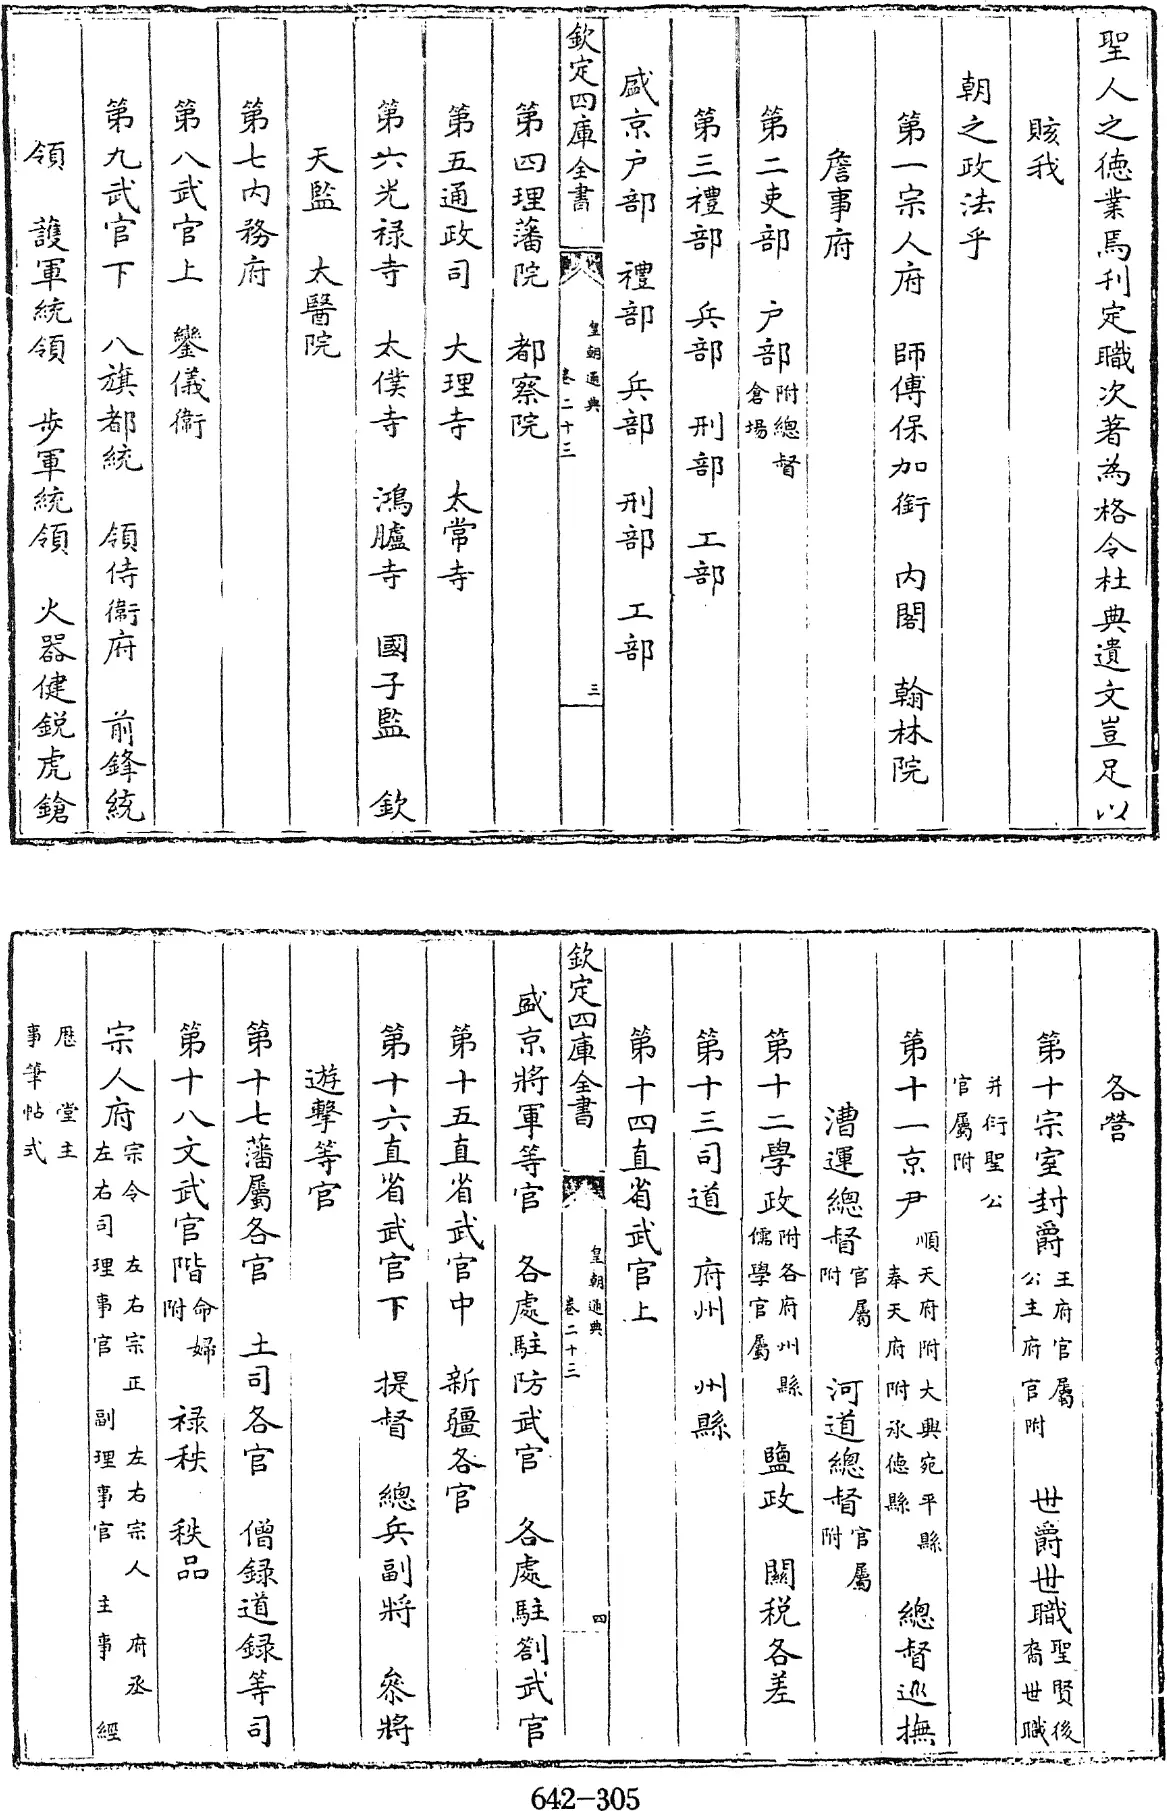 聖人之德業焉刊定職次著為格令杜典遺文豈足以
賅我
朝之政法乎
第一宗人府　師傅保加銜　内閣　翰林院
詹事府
第二吏部　户部附總督倉場
第三禮部　兵部　刑部　工部
盛京户部　禮部　兵部　刑部　工部
欽定四庫全書　皇朝通典卷二十三　三
第四理藩院　都察院
第五通政司　大理寺　太常寺
第六光禄寺　太僕寺　鴻臚寺　國子監　欽
天監　太醫院
第七内務府
第八武官上　鑾儀衛
第九武官下　八旗都統　領侍衛府　前鋒統
領　護軍統領　歩軍統領　火器健鋭虎鎗
各營
第十宗室封爵王府官屬公主府官附　世爵世職聖賢後裔世職
并衍聖公官屬附
第十一京尹順天府附大興宛平縣奉天府附承德縣　總督巡撫
漕運總督官屬附　河道總督官屬附
第十二學政附各府州縣儒學官屬　鹽政　關税各差
第十三司道　府州　州縣
第十四直省武官上
欽定四庫全書　皇朝通典卷二十三　四
盛京將軍等官　各處駐防武官　各處駐劄武官
第十五直省武官中　新疆各官
第十六直省武官下　提督　總兵副將　叅將
遊擊等官
第十七藩屬各官　土司各官　僧録道録等司
第十八文武官階命婦附　禄秩　秩品
宗人府宗令　左右宗正　左右宗人　府丞　左右司理事官　副理事官　主事　經
歷　堂主事筆帖式
642-305